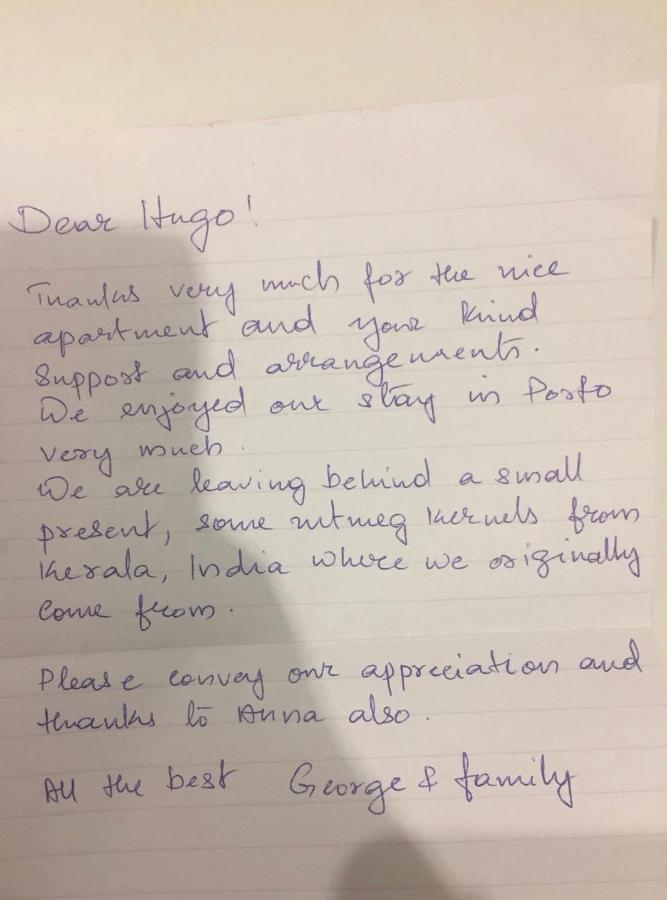 Dear Hugo!
Thanks very much for the nice
apartment and your kind
support and arrangements.
We enjoyed our stay in Porto
very much.
We are leaving behind a small
present, some nutmeg kernels from
Kerala, India where we originally
come from.
Please convey our appreciation and
thanks to Anna also.
All the best George & family